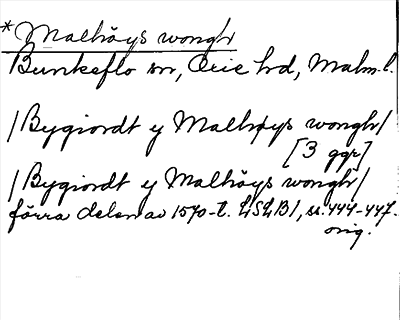 * Malhöys wongh
Bunkeflo sn, Oxie hd, Malm. l.
/Bygiordt y Malhøys wongh/
[3 ggr]
/Bygiordt y Malhöys wongh/
förra delen av 1570-t. LSLB1, s. 444-447.
orig.